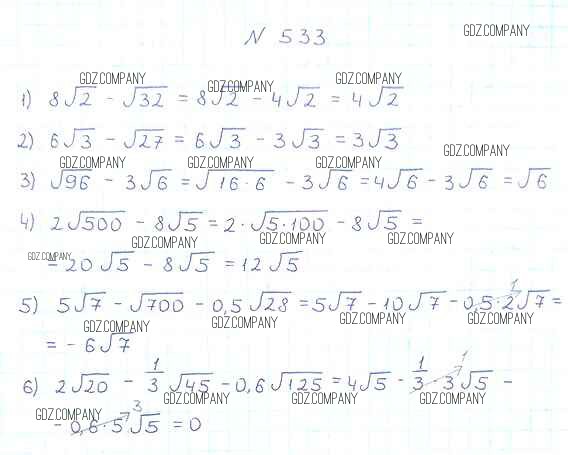 N 533
GDZ.COMPANY
GDZ.COMPANY GDZ.COMPANY GDZ.COMPANY
1) 8√2 - √32 = 8√2 - 4√2 = 4√2
2) 6√3 - √27 = 6√3 - 3√3 = 3√3
GDZ.COMPANY GDZ.COMPANY GDZ.COMPANY GDZ.COMPANY
3) √96 - 3√6 = √16·6 - 3√6 = 4√6 - 3√6 = √6
4) 2√500 - 8√5 = 2·√5·100 - 8√5 =
GDZ.COMPANY GDZ.COMPANY GDZ.COMPANY GDZ.COMPANY
= 20√5 - 8√5 = 12√5
5) 5√7 - √700 - 0,5√28 = 5√7 - 10√7 - 0,5·2√7 = 1
GDZ.COMPANY GDZ.COMPANY GDZ.COMPANY GDZ.COMPANY
= - 6√7
6) 2√20 - 1/3 √45 - 0,6√125 = 4√5 - 1/3·3√5 - 1
GDZ.COMPANY GDZ.COMPANY GDZ.COMPANY GDZ.COMPANY
- 0,6·5√5 = 0 3